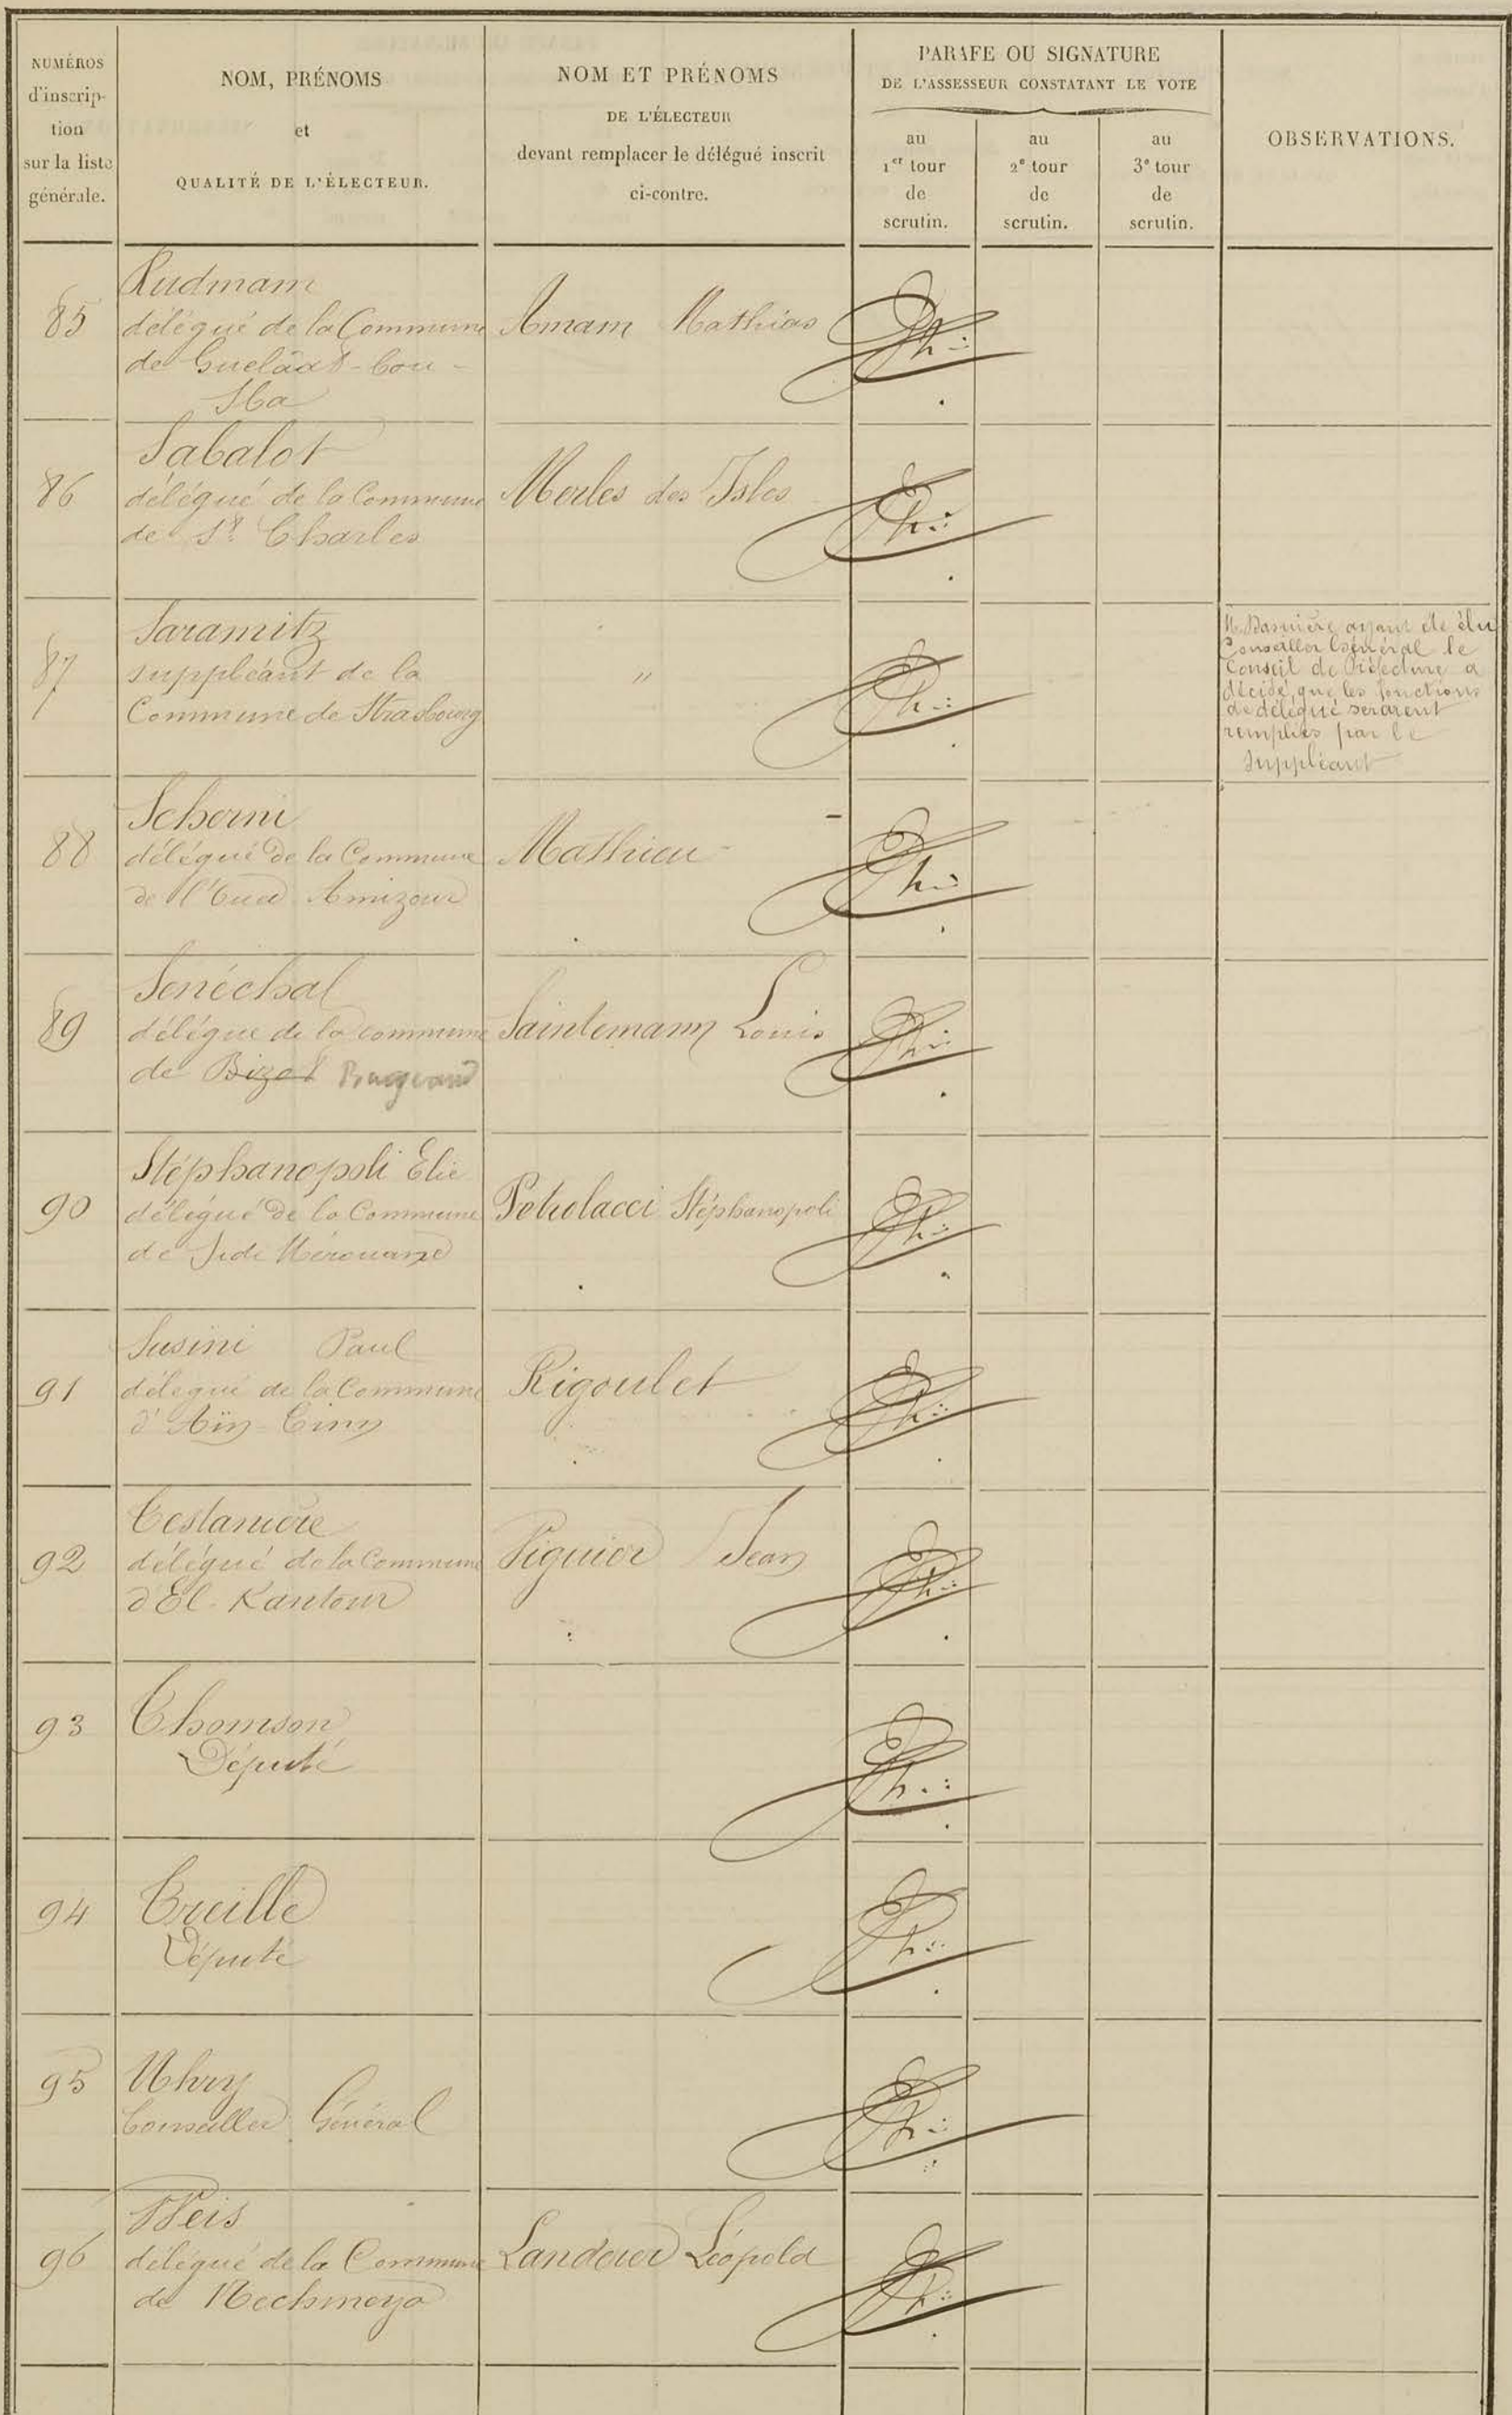 NUMÉROS
d'inscrip-
tion
sur la liste
générale.
NOM, PRÉNOMS
et
QUALITÉ DE L'ÉLECTEUR.
NOM ET PRÉNOMS
DE L'ÉLECTEUR
devant remplacer le délégué inscrit
ci-contre.
PARAFE OU SIGNATURE
DE L'ASSESSEUR CONSTATANT LE VOTE
au
1er tour
de
scrutin.
au
2e tour
de
scrutin.
au
3e tour
de
scrutin.
OBSERVATIONS.
85
Rudmann
délégué de la Commune
de Guelâat-bou-
Sba
Amam Mathias
86
Sabalot
délégué de la Commune
de St Charles
Merles des Isles
87
Saramitz
suppléant de la
Commune de Strasbourg
"
M. ayant été élu
Conseiller Général le
Conseil de Préfecture a
décidé que les fonctions
de délégué seraient
remplies par le
suppléant
88
Scherni
délégué de la Commune
de l'Oued Amizour
Mathieu
89
Senéchal
délégué de la commune
de Bizot
Saintemann Louis
90
Stéphanopoli Elie
délégué de la Commune
de Sidi Mérouane
Petrolacci Stéphanopoli
91
Susini Paul
délégué de la Commune
d'Aïn-Tinn
Rigoulet
92
Testanière
délégué de la Commune
d'El-Kantour
Piguier Jean
93
Thomson
Député
94
Treille
Député
95
Uhry
Conseiller Général
96
Weis
délégué de la Commune
de Nechmeya
Landerer Léopold